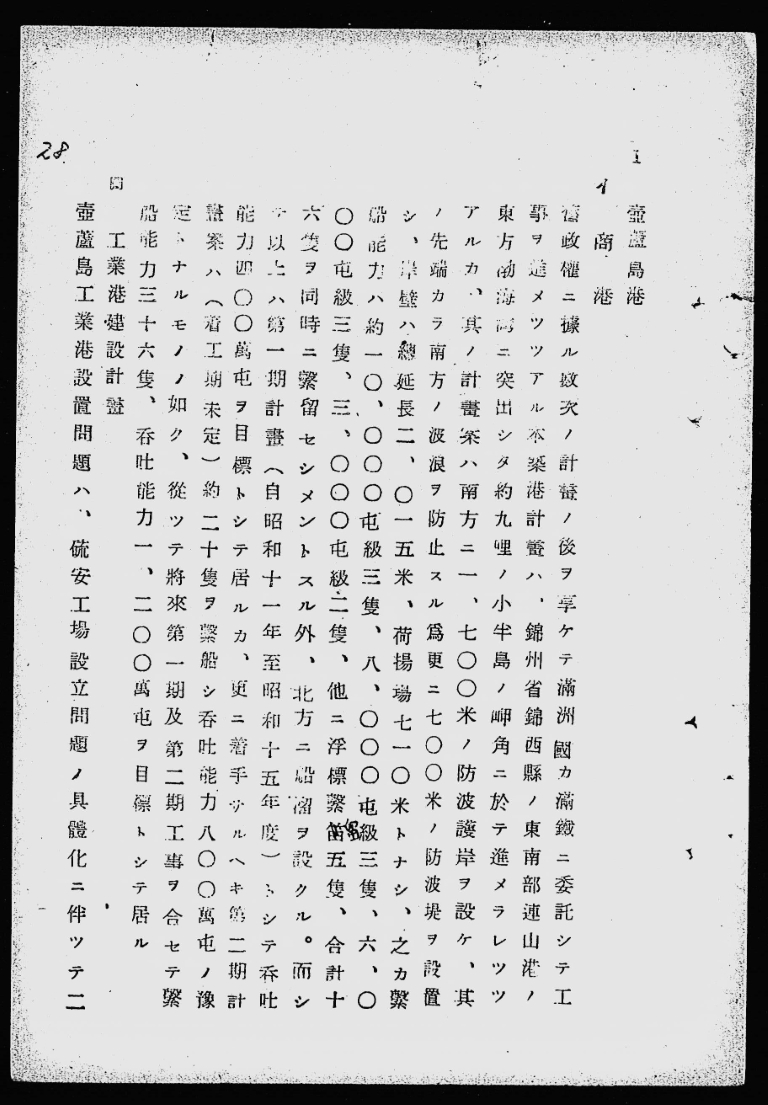 28
1 壺蘆島港
イ 商港
舊政權ニ據ル數次ノ計畫ノ後ヲ享ケテ滿洲國カ滿鐵ニ委託シテ工
事ヲ進メツツアル本築港計畫ハ、錦州省錦西縣ノ東南部連山港ノ
東方渤海灣ニ突出シタ約九哩ノ小半島ノ岬角ニ於テ進メラレツツ
アルカ、其ノ計畫案ハ南方ニ一、七〇〇米ノ防波護岸ヲ設ケ、其
ノ先端カラ南方ノ波浪ヲ防止スル爲更ニ七〇〇米ノ防波堤ヲ設置
シ、岸壁ハ總延長二、〇一五米、荷揚場七一〇米トナシ、之カ繫
船能力ハ約一〇、〇〇〇屯級三隻、八、〇〇〇屯級三隻、六、〇
〇〇屯級三隻、三、〇〇〇屯級二隻、他ニ浮標繫留五隻、合計十
六隻ヲ同時ニ繫留セシメントスル外、北方ニ船溜ヲ設クル。而シ
テ以上ハ第一期計畫（自昭和十一年至昭和十五年度）トシテ呑吐
能力四〇〇萬屯ヲ目標トシテ居ルカ、更ニ着手サルヘキ第二期計
畫案ハ（着工期未定）約二十隻ヲ繫船シ呑吐能力八〇〇萬屯ノ豫
定トナルモノノ如ク、從ツテ將來第一期及第二期工事ヲ合セテ繫
船能力三十六隻、呑吐能力一、二〇〇萬屯ヲ目標トシテ居ル
工業港建設計畫
壺蘆島工業港設置問題ハ、硫安工場設立問題ノ具體化ニ伴ツテ二